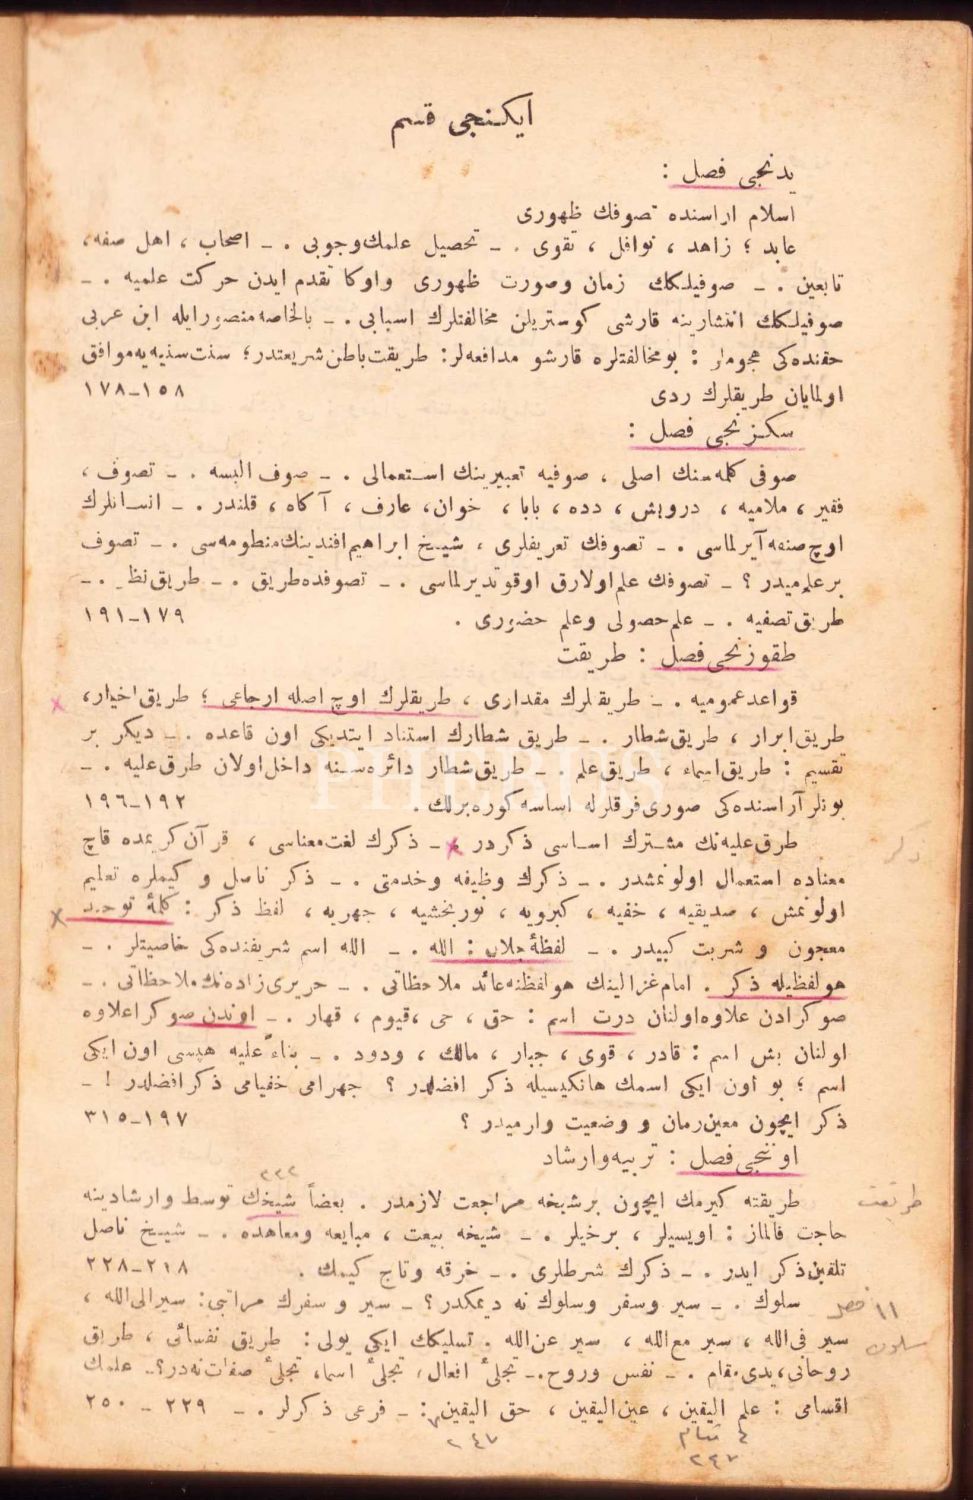 ايكنجى قسم
يدنجى فصل :
اسلام اراسنده تصوفك ظهورى
عابد ؛ زاهد ، نوافل ، تقوى . ـ تحصيل علمك وجوبى . ـ اصحاب ، اهل صفه ،
تابعين . ـ صوفيلكك زمان وصورت ظهورى واوكا تقدم ايدن حركت علميه . ـ
صوفيلكك انتشارينه قارشى كوستريلن مخالفتلرك اسبابى . ـ بالخاصه منصور ايله ابن عربى
حقنده كى هجوملر : بو مخالفتلره قارشو مدافعه لر : طريقت باطن شريعتدر ؛ سنت سنيه يه موافق
اولمايان طريقلرك ردى ١٥٨ـ١٧٨
سكزنجى فصل :
صوفى كلمه سنك اصلى ، صوفيه تعبيرينك استعمالى . ـ صوف البسه . ـ تصوف ،
فقير ، ملاميه ، درويش ، دده ، بابا ، خوان ، عارف ، آكاه ، قلندر . ـ انسانلرك
اوچ صنفه آيرلماسى . ـ تصوفك تعريفلرى ، شيخ ابراهيم افندينك منظومه سى . ـ تصوف
بر علميدر ؟ ـ تصوفك علم اولارق اوقوتديرلماسى . ـ تصوفده طريق . ـ طريق نظر . ـ
طريق تصفيه . ـ علم حصولى وعلم حضورى . ١٧٩ـ١٩١
طقوزنجى فصل : طريقت
قواعد عموميه . ـ طريقلرك مقدارى ، طريقلرك اوچ اصله ارجاعى ؛ طريق اخيار ،
طريق ابرار ، طريق شطار . ـ طريق شطارك استناد ايتديكى اون قاعده . ـ ديكر بر
تقسيم : طريق اسماء ، طريق علم . ـ طريق شطار دائره سنه داخل اولان طرق عليه . ـ
بونلر آراسنده كى صورى فرقلرله اساسه كوره برلك . ١٩٢ـ١٩٦
طرق عليه نك مشترك اساسى ذكردر . ـ ذكرك لغت معناسى ، قرآن كريمده قاچ
ذكر
معناده استعمال اولونمشدر . ـ ذكرك وظيفه وخدمتى . ـ ذكر ناصل و كيملره تعليم
اولونمش ، صديقيه ، خفيه ، كبرويه ، نوربخشيه ، جهريه ، لفظ ذكر : كلمۀ توحيد
معجون و شربت كبيدر . ـ لفظۀ جلال : الله . ـ الله اسم شريفنده كى خاصيتلر . ـ
هو لفظيله ذكر . امام غزالينك هو لفظنه عائد ملاحظاتى . ـ حريرى زاده نك ملاحظاتى . ـ
صوكرادن علاوه اولنان درت اسم : حق ، حى ، قيوم ، قهار . ـ اوندن صوكرا علاوه
اولنان بش اسم : قادر ، قوى ، جبار ، مالك ، ودود . ـ بناءً عليه هپسى اون ايكى
اسم ؛ بو اون ايكى اسمك هانكيسيله ذكر افضلدر ؟ جهرامى خفيامى ذكر افضلدر ! ـ
ذكر ايچون معين زمان و وضعيت وارميدر ؟ ١٩٧ـ٣١٥
اوننجى فصل : تربيه وارشاد
٢٢٢
طريقته كيرمك ايچون بر شيخه مراجعت لازمدر . بعضاً شيخك توسط وارشادينه
طريقت
حاجت قالماز : اويسيلر ، برخيلر . ـ شيخه بيعت ، مبايعه ومعاهده . ـ شيخ ناصل
تلقين ذكر ايدر . ـ ذكرك شرطلرى . ـ خرقه وتاج كيمك . ٢١٨ـ٢٢٨
١١ فصل
سلوك . ـ سير وسفر وسلوك نه ديمكدر ؟ ـ سير و سفرك مراتبى : سير الى الله ،
سلوك
سير فى الله ، سير مع الله ، سير عن الله . تسليكك ايكى يولى : طريق نفسانى ، طريق
روحانى ، يدى مقام . ـ نفس وروح . ـ تجلئ افعال ، تجلئ اسما ، تجلئ صفات نه در ؟ . علمك
اقسامى : علم اليقين ، عين اليقين ، حق اليقين : ـ فرعى ذكرلر . ـ ٢٢٩ ـ ٢٥٠
٤ مقام
٢٤٧
٢٤٧
PHEBUS